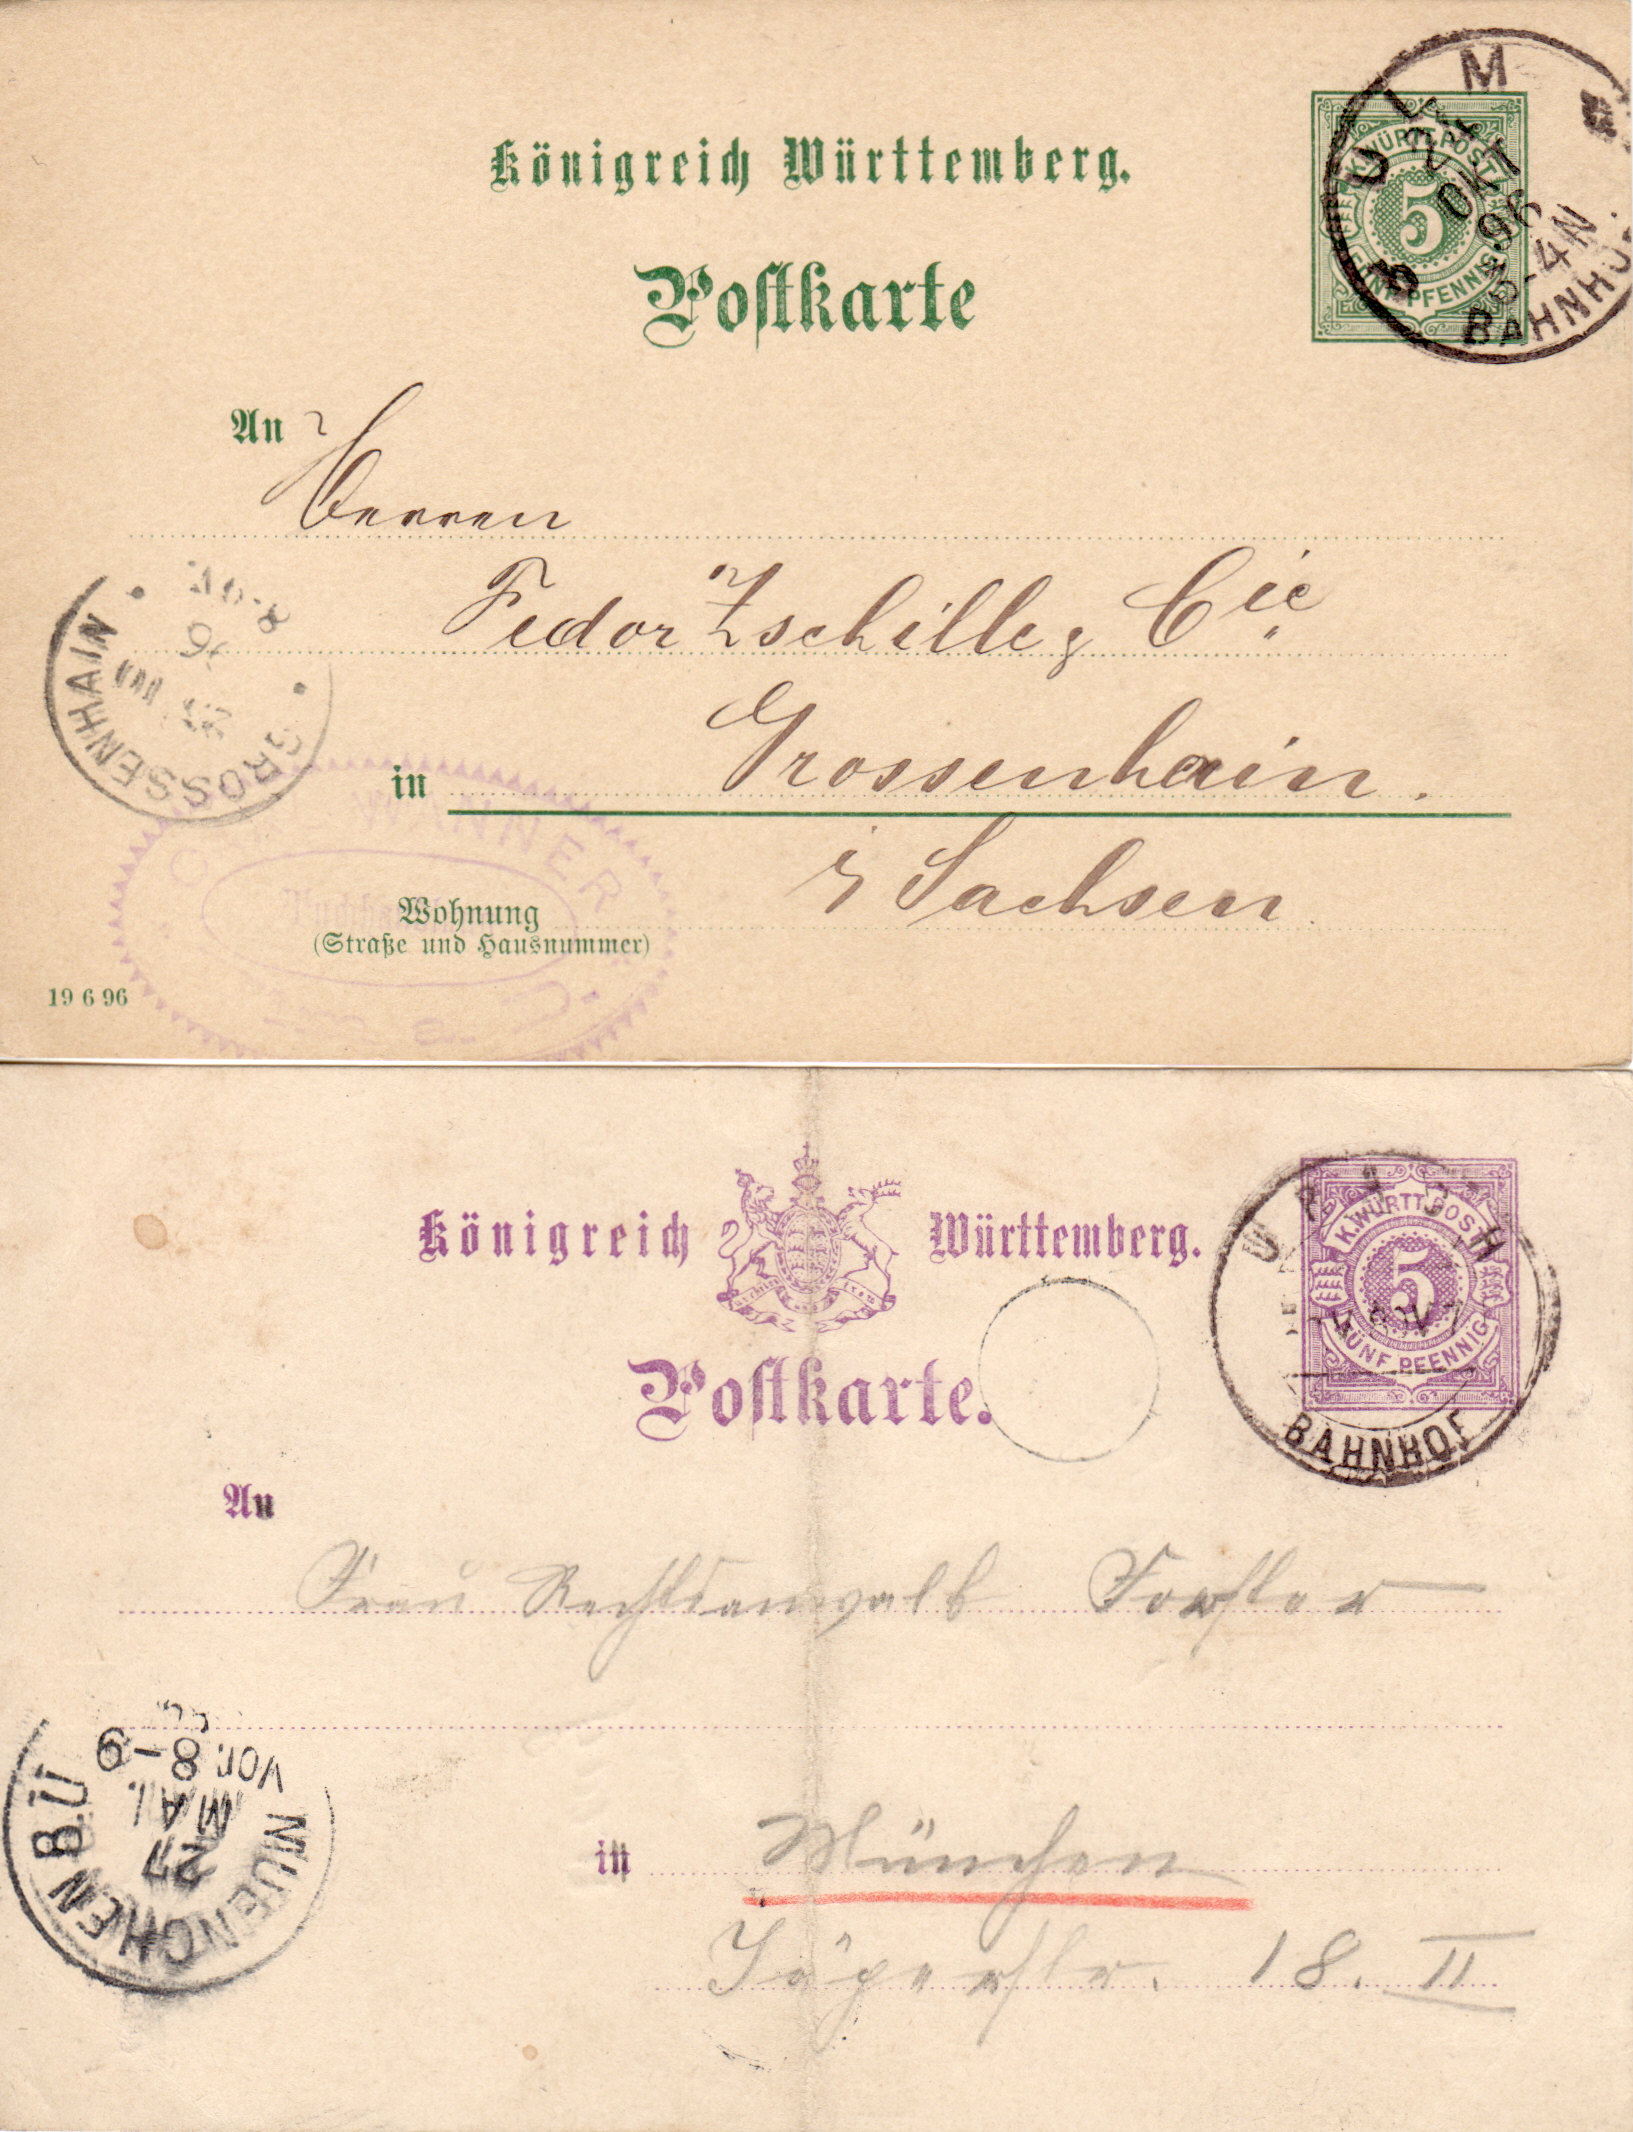 Königreich Württemberg.
Postkarte
K. WÜRTT. POST
5
FÜNF PFENNIG
ULM
OKT
96
3-4N
BAHNHOF
An
Herren
Fedor Zschille & Cie
in Grossenhain.
i/ Sachsen
GROSSENHAIN
WANNER
Wohnung
(Straße und Hausnummer)
19 6 96
Königreich Württemberg.
Postkarte.
K. WÜRTT. POST
5
FÜNF PFENNIG
BAHNHOF
An
Frau Rechtsanwalt Forster
MUENCHEN B.Ü
27
MAI
VOR. 8-9
in München
Jägerstr. 18. II